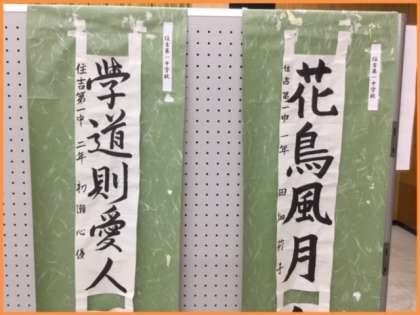 住吉第一中学校
花鳥風月
住吉第一中 一年 田畑莉子
住吉第一中学校
學道則愛人
住吉第一中 二年 初瀬心優